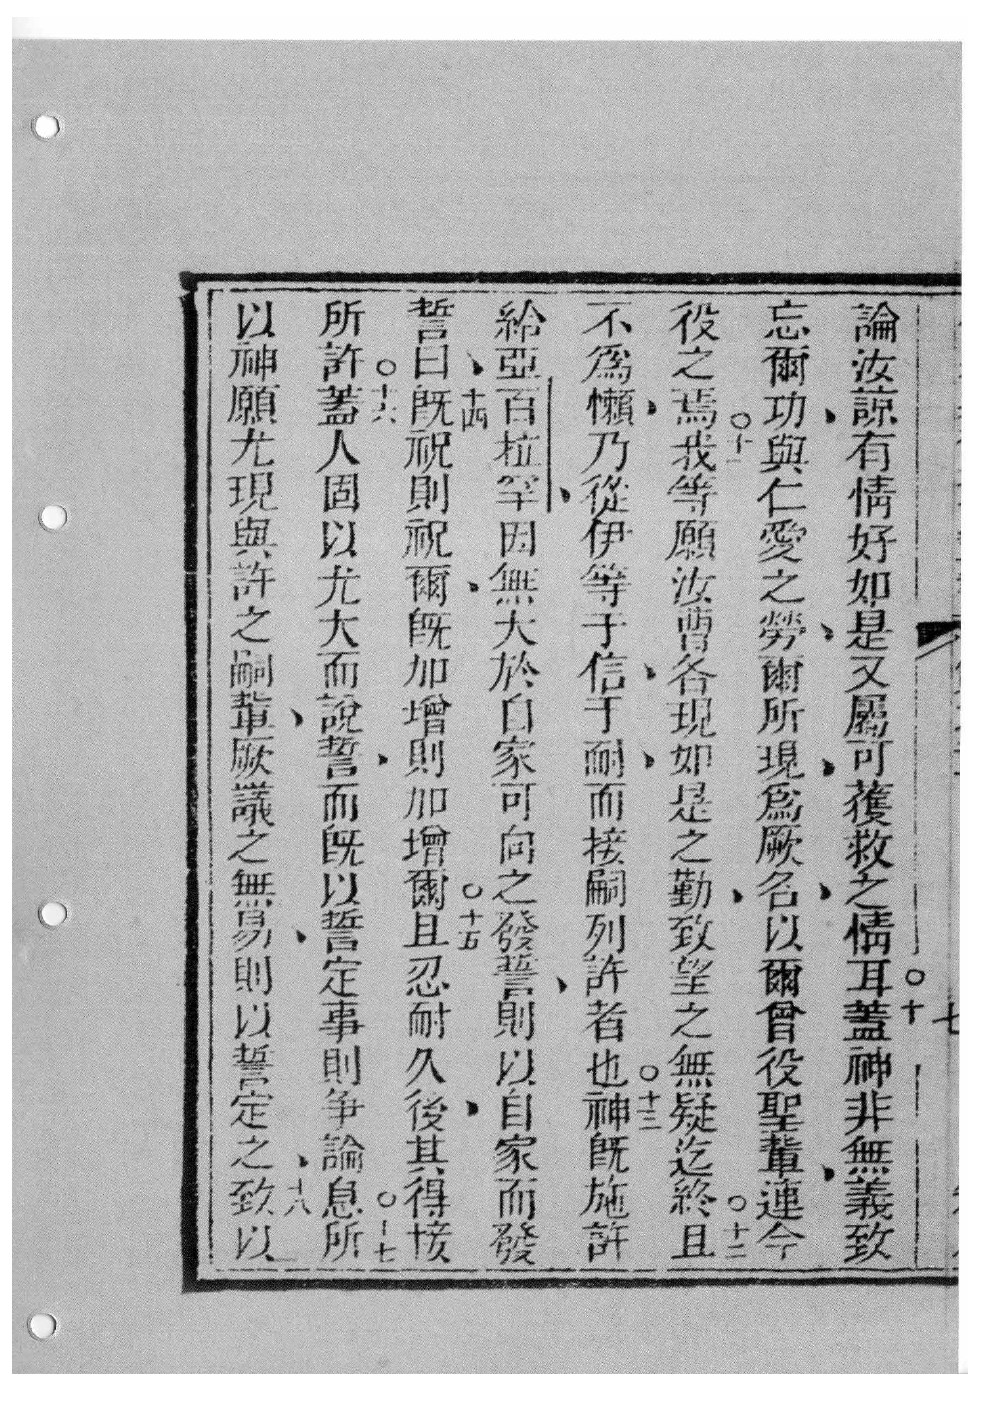 論汝諒有情好如是又屬可獲救之情耳蓋○十神非無義致
忘爾功與仁愛之勞爾所現爲厥名以爾曾役聖輩連今
役之焉○十一我等願汝曹各現如是之勤致望之無疑迄終○十二且
不爲懶乃從伊等于信于耐而接嗣列許者也○十三神旣施許
給亞百拉罕因無大於自家可向之發誓則以自家而發
誓曰十四旣祝則祝爾旣加增則加增爾○十五且忍耐久後其得接
所許○十六蓋人固以尤大而說誓而旣以誓定事則爭論息○十七所
以神願尤現與許之嗣輩厥議之無易則以誓定之十八致以
七